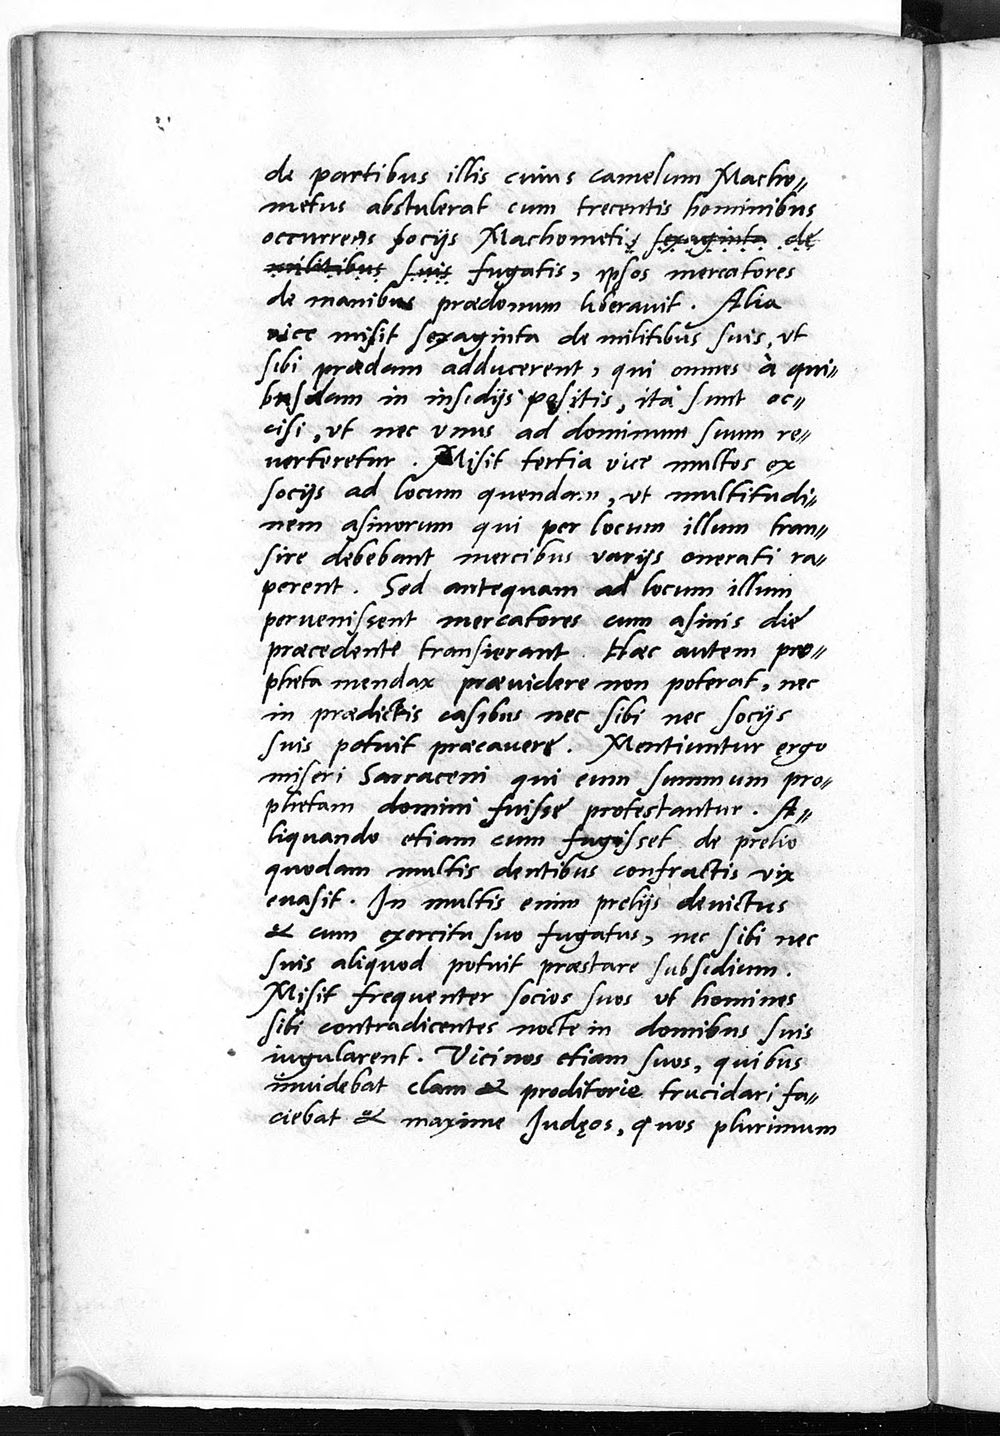 de partibus illis cuius camelum Macho„
metus abstulerat cum trecentis hominibus
occurrens socijs Machometi, sexaginta de
militibus suis fugatis, ipsos mercatores
de manibus prædonum liberauit. Alia
uice misit sexaginta de militibus suis, vt
sibi prædam adducerent, qui omnes à qui„
busdam in insidijs positis, ità sunt oc„
cisi, vt nec vnus ad dominum suum re„
uerteretur. Misit tertia vice multos ex
socijs ad locum quendam, vt multitudi„
nem asinorum qui per locum illum tran„
sire debebant mercibus varijs onerati ra„
perent. Sed antequam ad locum illum
peruenissent mercatores cum asinis die
præcedente transierant. Hæc autem pro„
pheta mendax præuidere non poterat, nec
in prædictis casibus nec sibi nec socijs
suis potuit præcauere. Mentiuntur ergo
miseri Sarraceni qui eum summum pro„
phetam domini fuisse protestantur. A„
liquando etiam cum fugisset de prelio
quodam multis dentibus confractis vix
euasit. In multis enim prelijs deuictus
& cum exercitu suo fugatus, nec sibi nec
suis aliquod potuit præstare subsidium.
Misit frequenter socios suos vt homines
sibi contradicentes nocte in domibus suis
iugularent. Vicinos etiam suos, quibus
inuidebat clam & proditorie trucidari fa„
ciebat & maxime Iudęos, quos plurimum